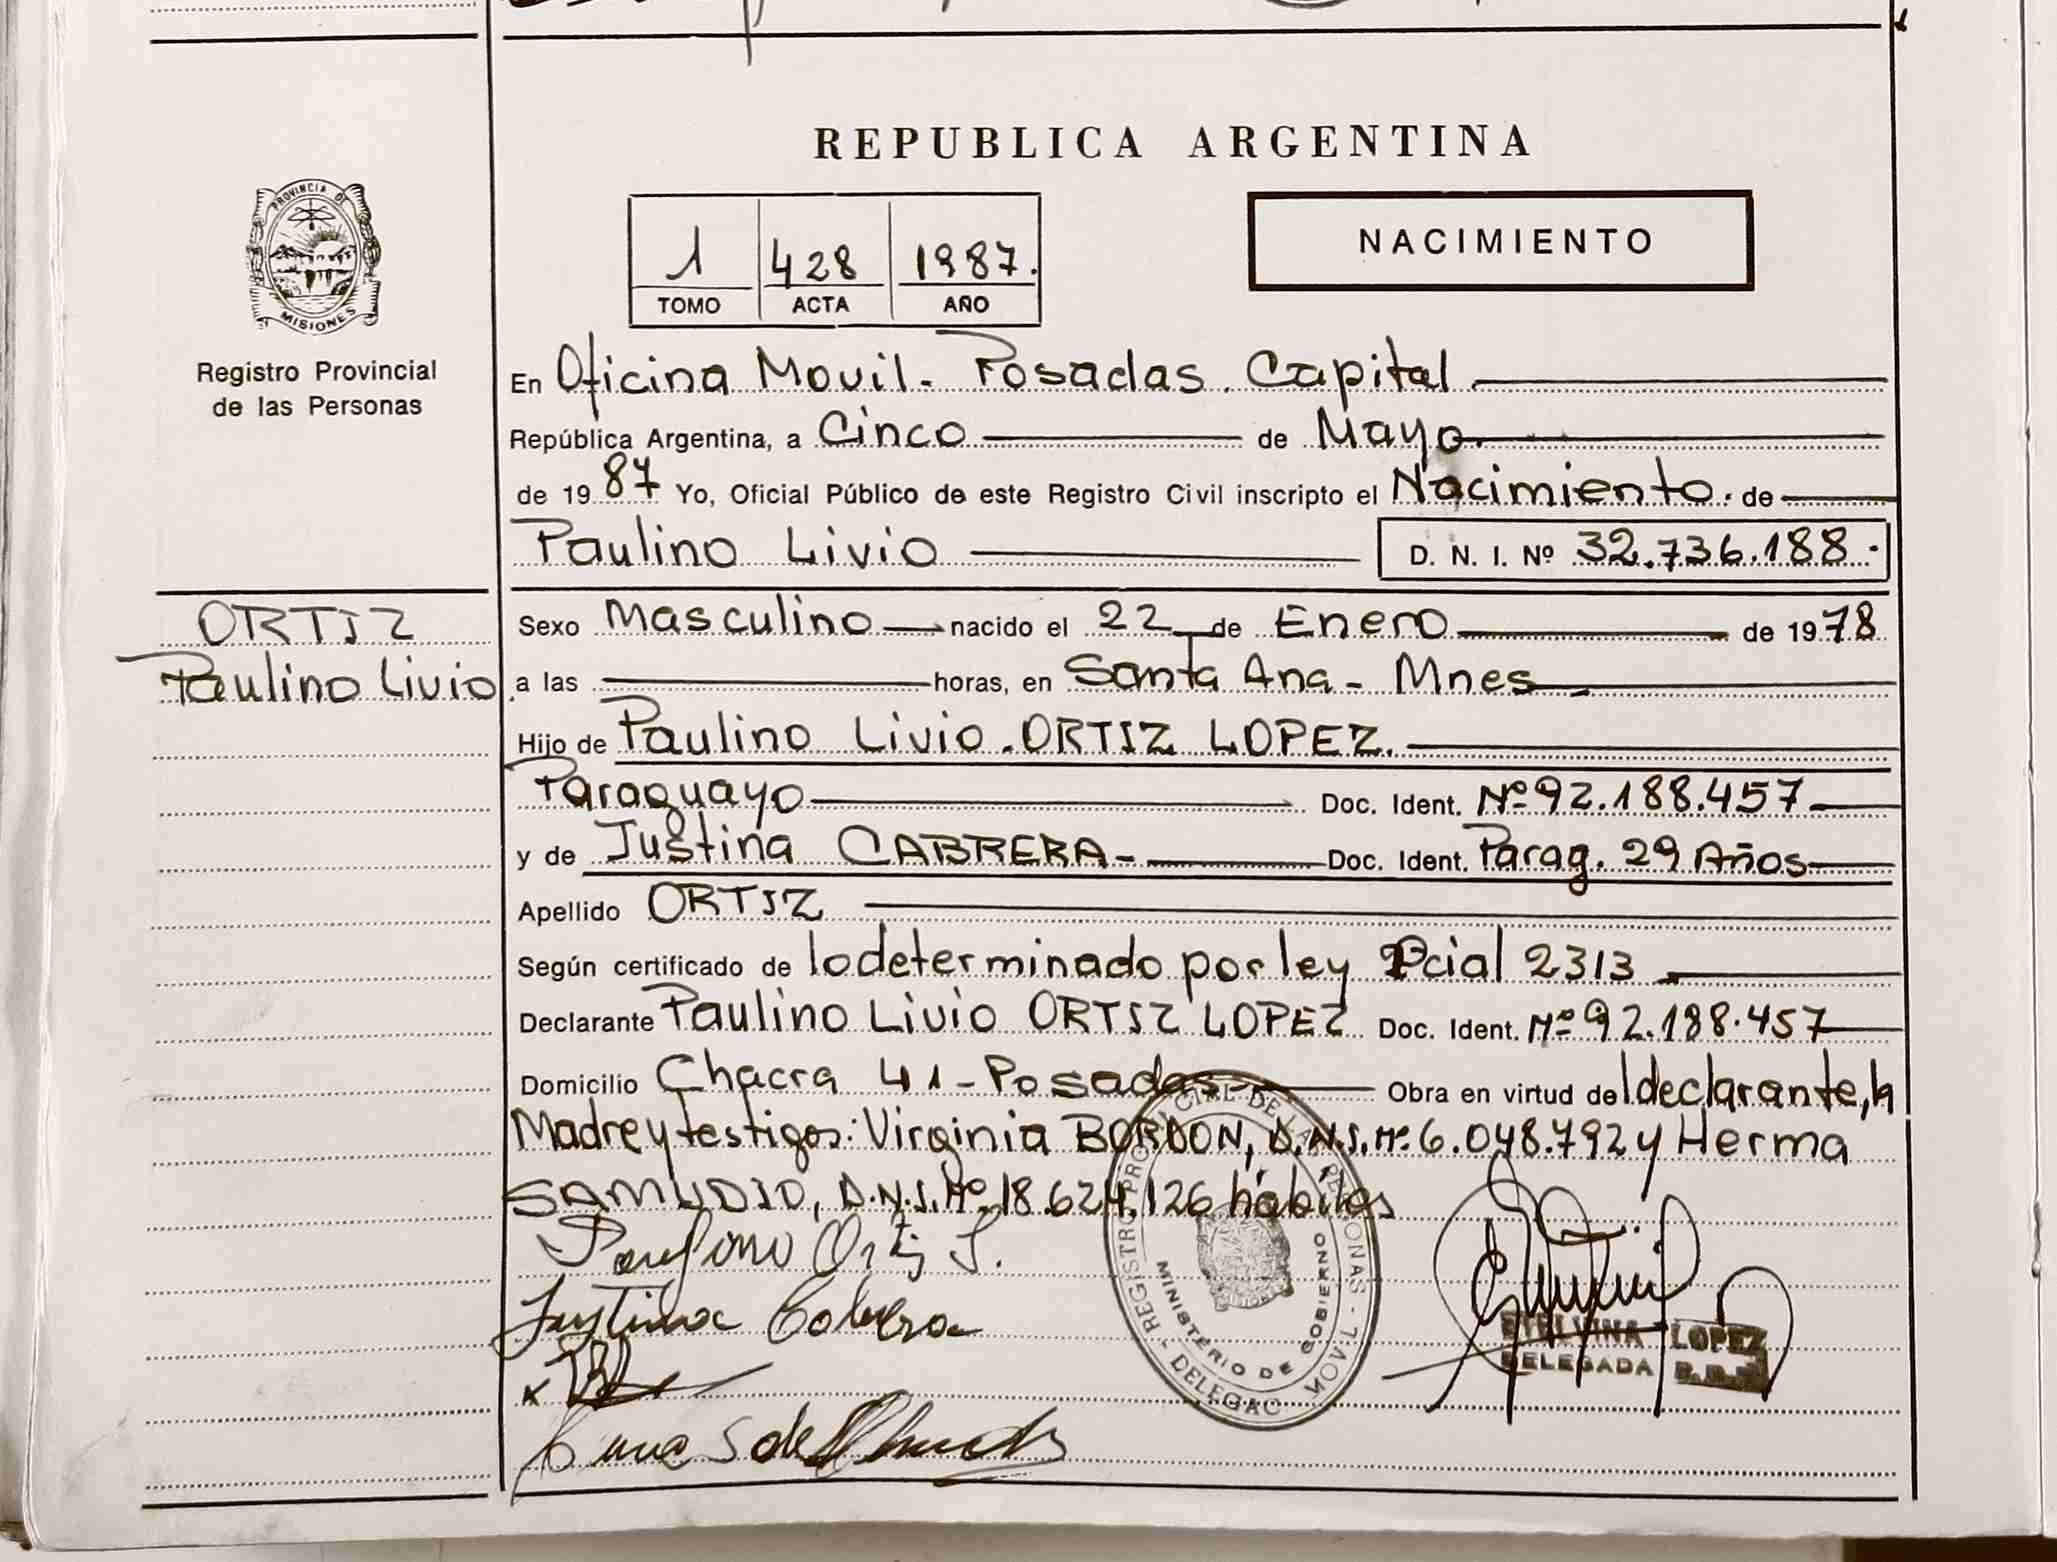 REPUBLICA ARGENTINA
PROVINCIA DE
MISIONES
Registro Provincial
de las Personas
1 428 1987.
TOMO ACTA AÑO
NACIMIENTO
En Oficina Movil. Posadas. Capital
República Argentina, a Cinco de Mayo
de 1987 Yo, Oficial Público de este Registro Civil inscripto el Nacimiento. de
Paulino Livio D. N. I. Nº 32.736.188.
ORTIZ
Paulino Livio
Sexo Masculino nacido el 22 de Enero de 1978
a las horas, en Santa Ana - Mnes
Hijo de Paulino Livio ORTIZ LOPEZ.
Paraguayo Doc. Ident. Nº 92.188.457
y de Justina CABRERA- Doc. Ident. Parag. 29 Años
Apellido ORTIZ
Según certificado de lo determinado por ley Pcial 2313
Declarante Paulino Livio ORTIZ LOPEZ Doc. Ident. Nº 92.188.457
Domicilio Chacra 41 - Posadas- Obra en virtud del declarante, la
Madre y testigos: Virginia BORDON, D.N.I. Nº 6.048.792 y Herma
SAMUDIO, D.N.I. Nº 18.624.126 hábiles
Ortiz L.
Justina Cabrera
REGISTRO PROVINCIAL DE LAS PERSONAS - DELEGAC. MOVIL
MINISTERIO DE GOBIERNO
ETELVINA LOPEZ
DELEGADA